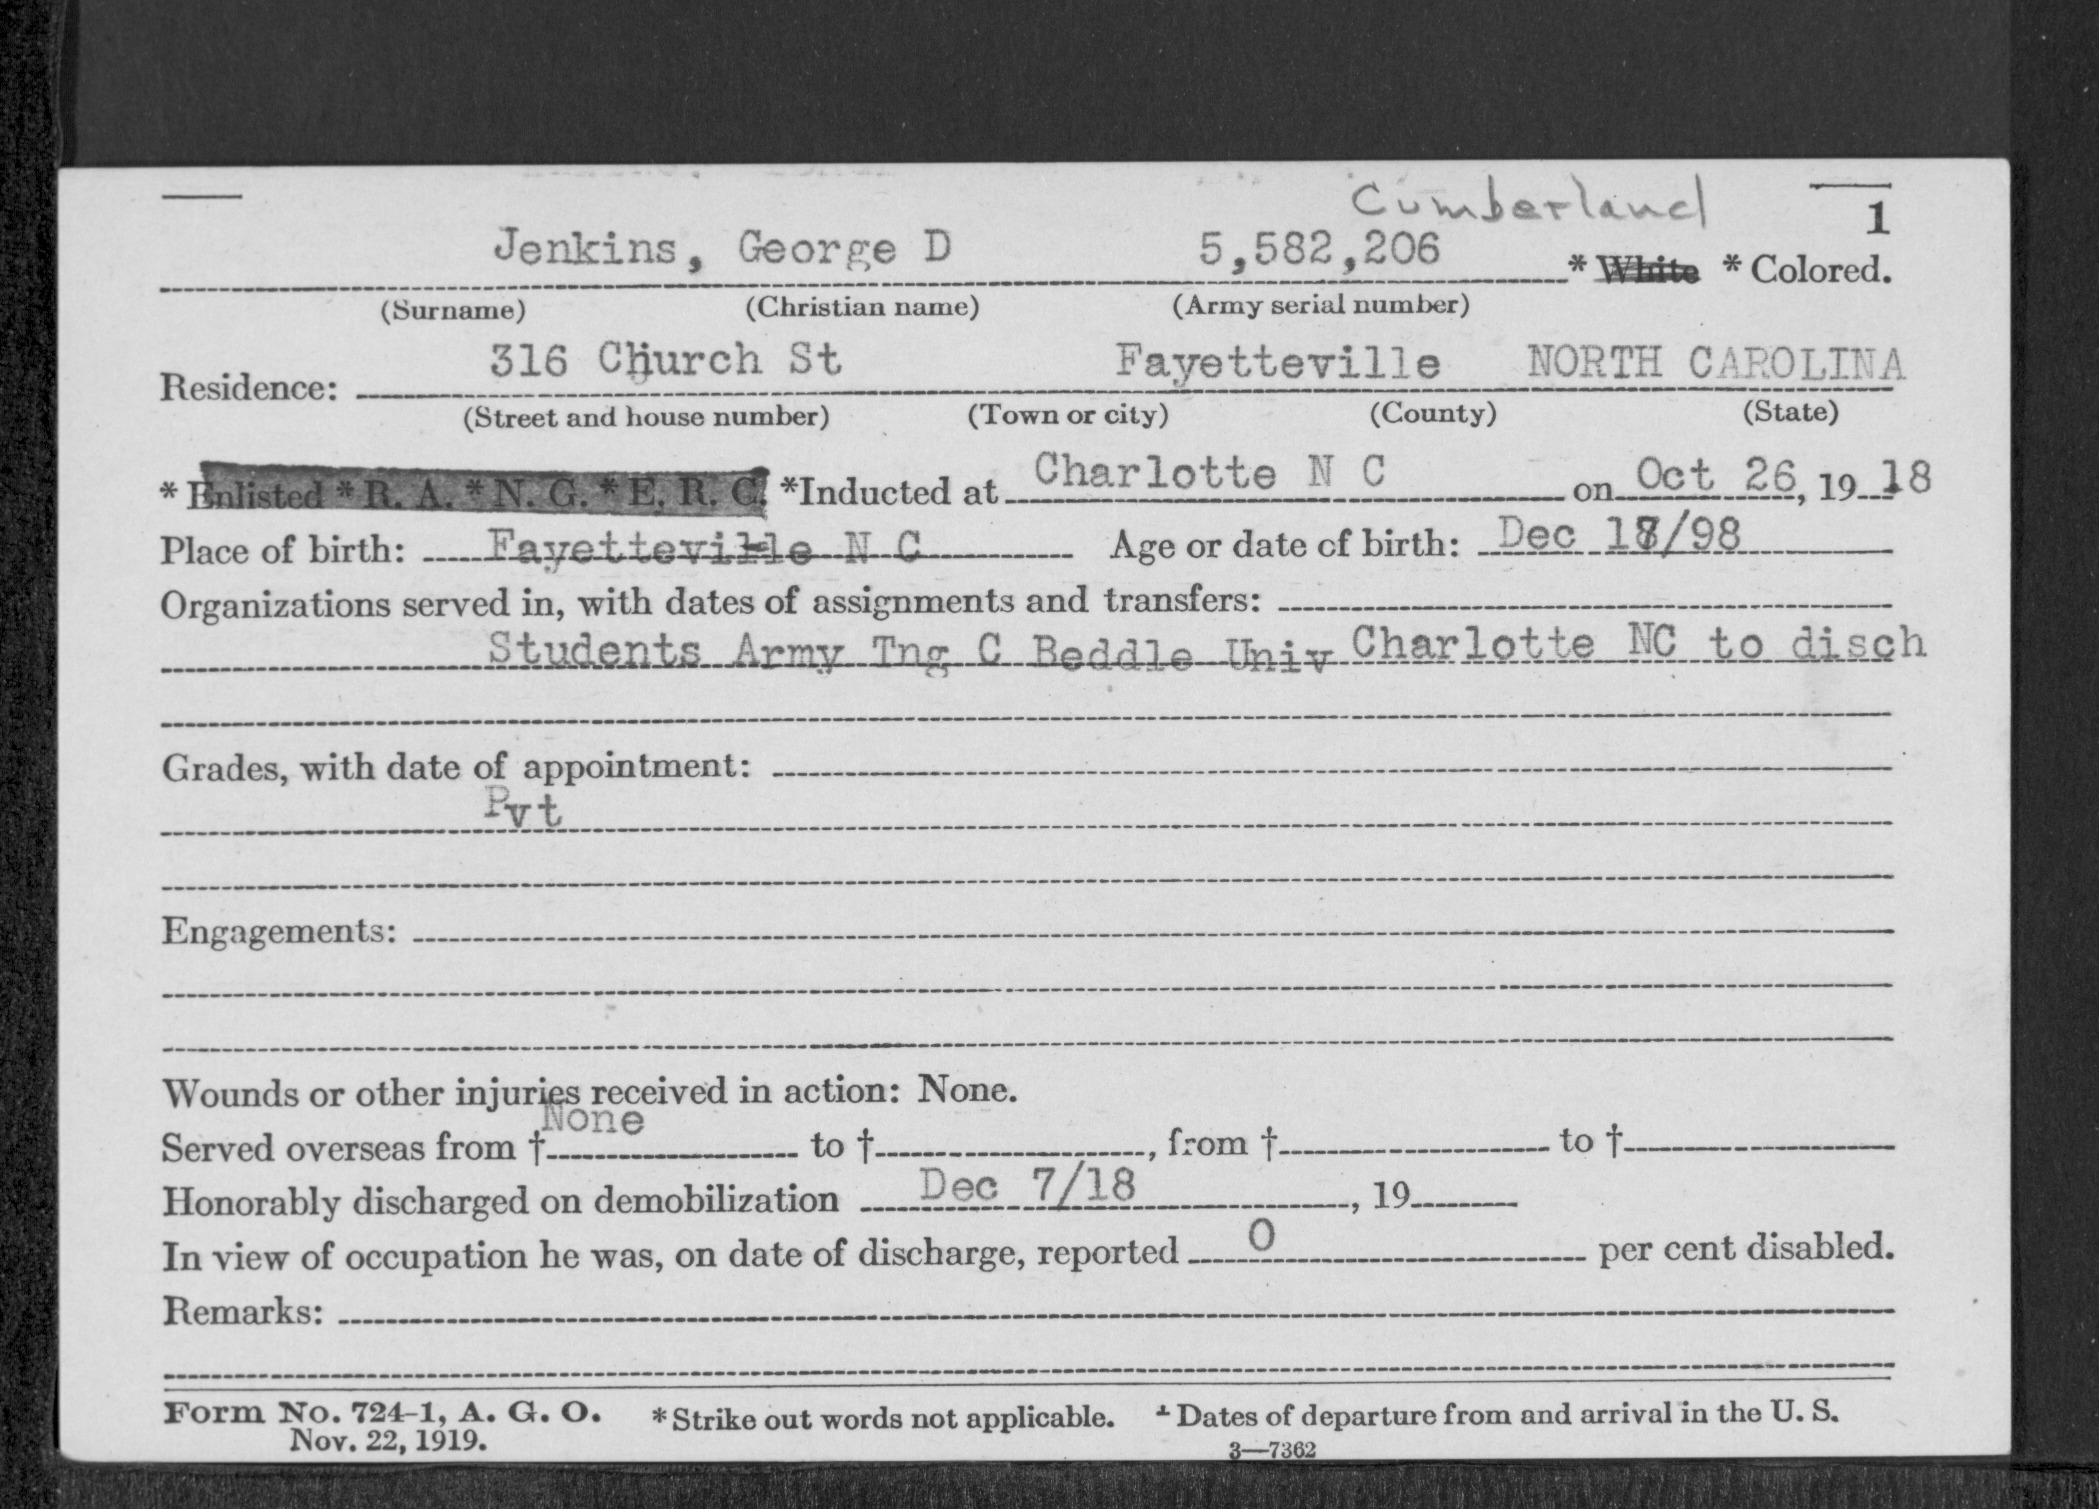 Cumberland
1
Jenkins, George D 5,582,206 * White * Colored.
(Surname) (Christian name) (Army serial number)
316 Church St Fayetteville NORTH CAROLINA
Residence:
(Street and house number) (Town or city) (County) (State)
* Enlisted * R. A. * N. G. * E. R. C. *Inducted at Charlotte N C on Oct 26, 19 18
Place of birth: Fayetteville N C Age or date of birth: Dec /98
Organizations served in, with dates of assignments and transfers:
Students Army Tng C Beddle Univ Charlotte NC to disch
Grades, with date of appointment:
Pvt
Engagements:
Wounds or other injuries received in action: None.
Served overseas from † None to †, from † to †
Honorably discharged on demobilization Dec 7/18, 19
In view of occupation he was, on date of discharge, reported 0 per cent disabled.
Remarks:
Form No. 724-1, A. G. O. * Strike out words not applicable. † Dates of departure from and arrival in the U. S.
Nov. 22, 1919. 3—7362